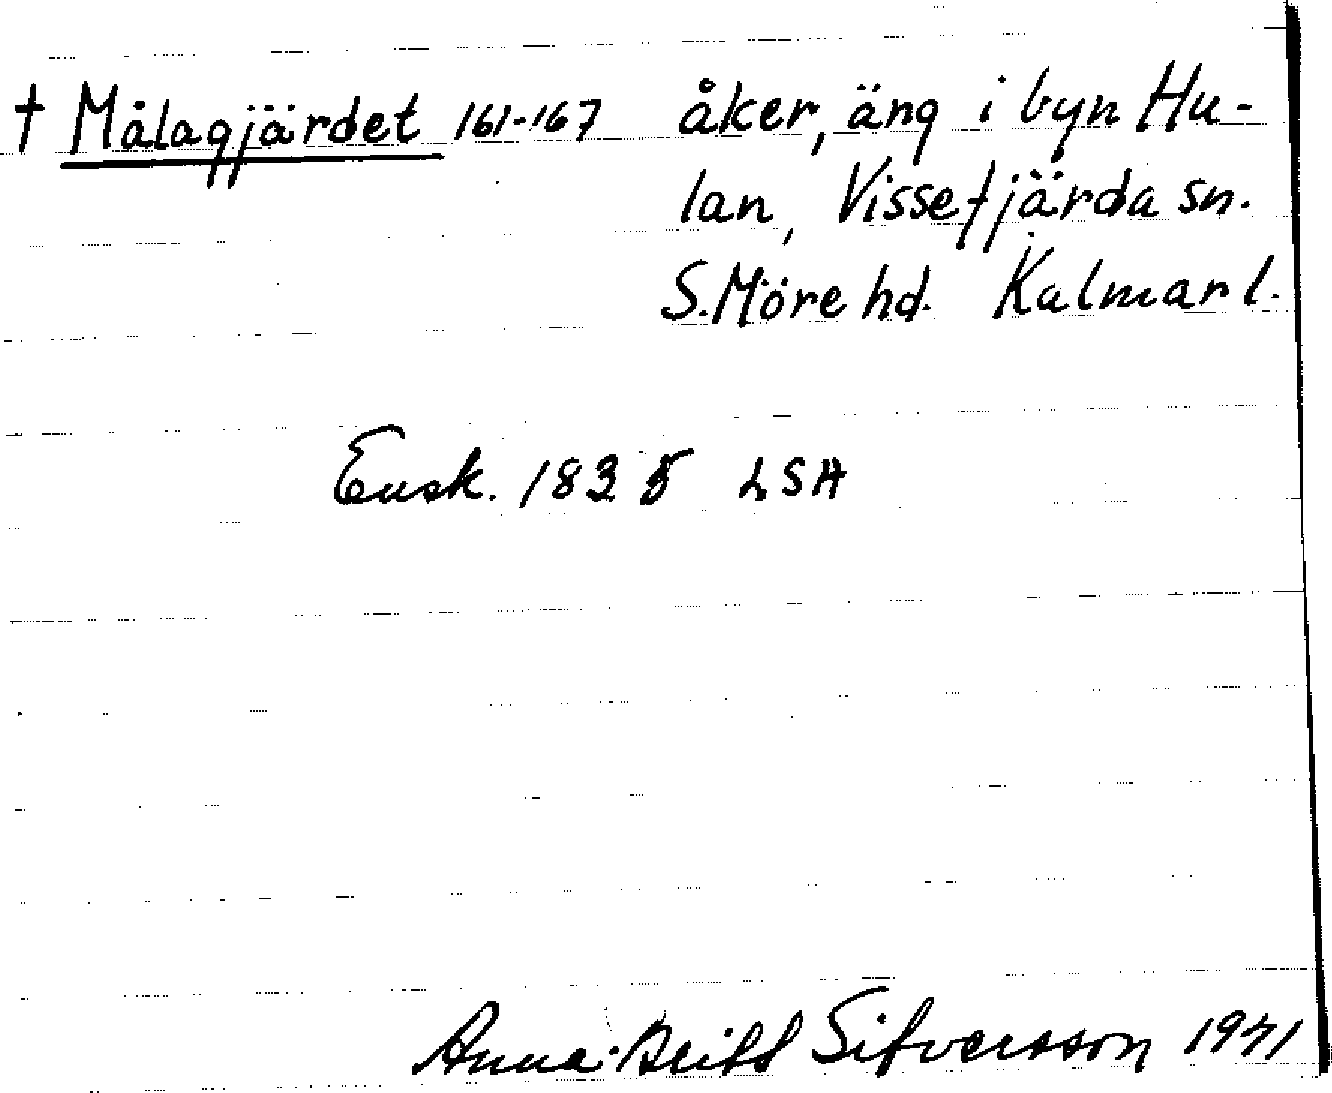 † Målagjärdet 161-167 åker, äng i byn Hu-
lan, Vissefjärda sn.
S. Möre hd. Kalmar l.
Ensk. 1835 LSA
Anna-Britt Sifversson 1971